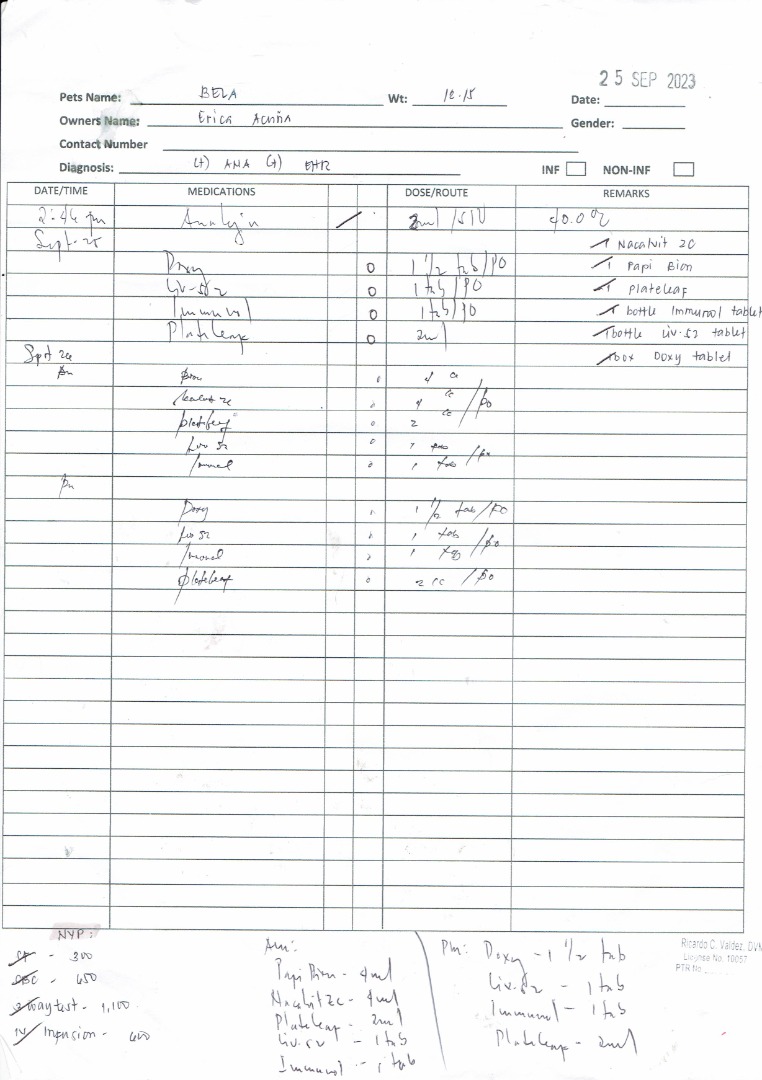 25 SEP 2023
Pets Name: BELA Wt: 12.15 Date:
Owners Name: Erica Acuña Gender:
Contact Number
Diagnosis: (+) ANA (+) EHR INF NON-INF
DATE/TIME MEDICATIONS DOSE/ROUTE REMARKS
2:46 pm Analgin 2ml /SIV 40.0°C
Sept. 25 1 Nacalvit 2C
Doxy 0 1 1/2 tab/PO 1 Papi Bion
Liv-52 0 1 tab/PO 1 Plateleaf
Immunol 0 1 tab/PO 1 bottle Immunol tablet
Plateleaf 0 2ml 1 bottle Liv-52 tablet
Sept 26 1 box Doxy tablet
Bion 4 cc
4 cc /po
plateleaf 0 2 cc
Liv 52 0 1 tab
Immunol 0 1 tab /po
pm
Doxy 1 1/2 tab/PO
Liv 52 1 tab
Immunol 1 tab /po
plateleaf 0 2 cc /po
NYP:
- 300
CBC - 650
3 way test - 1,100
IV Infusion - 600
Am:
Papi Bion - 4ml
Nacalvit 2C - 4ml
Plateleaf - 2ml
Liv-52 - 1 tab
Immunol - 1 tab
Pm: Doxy - 1 1/2 tab
Liv-52 - 1 tab
Immunol - 1 tab
Plateleaf - 2ml
Ricardo C. Valdez, DVM
License No. 10057
PTR No.